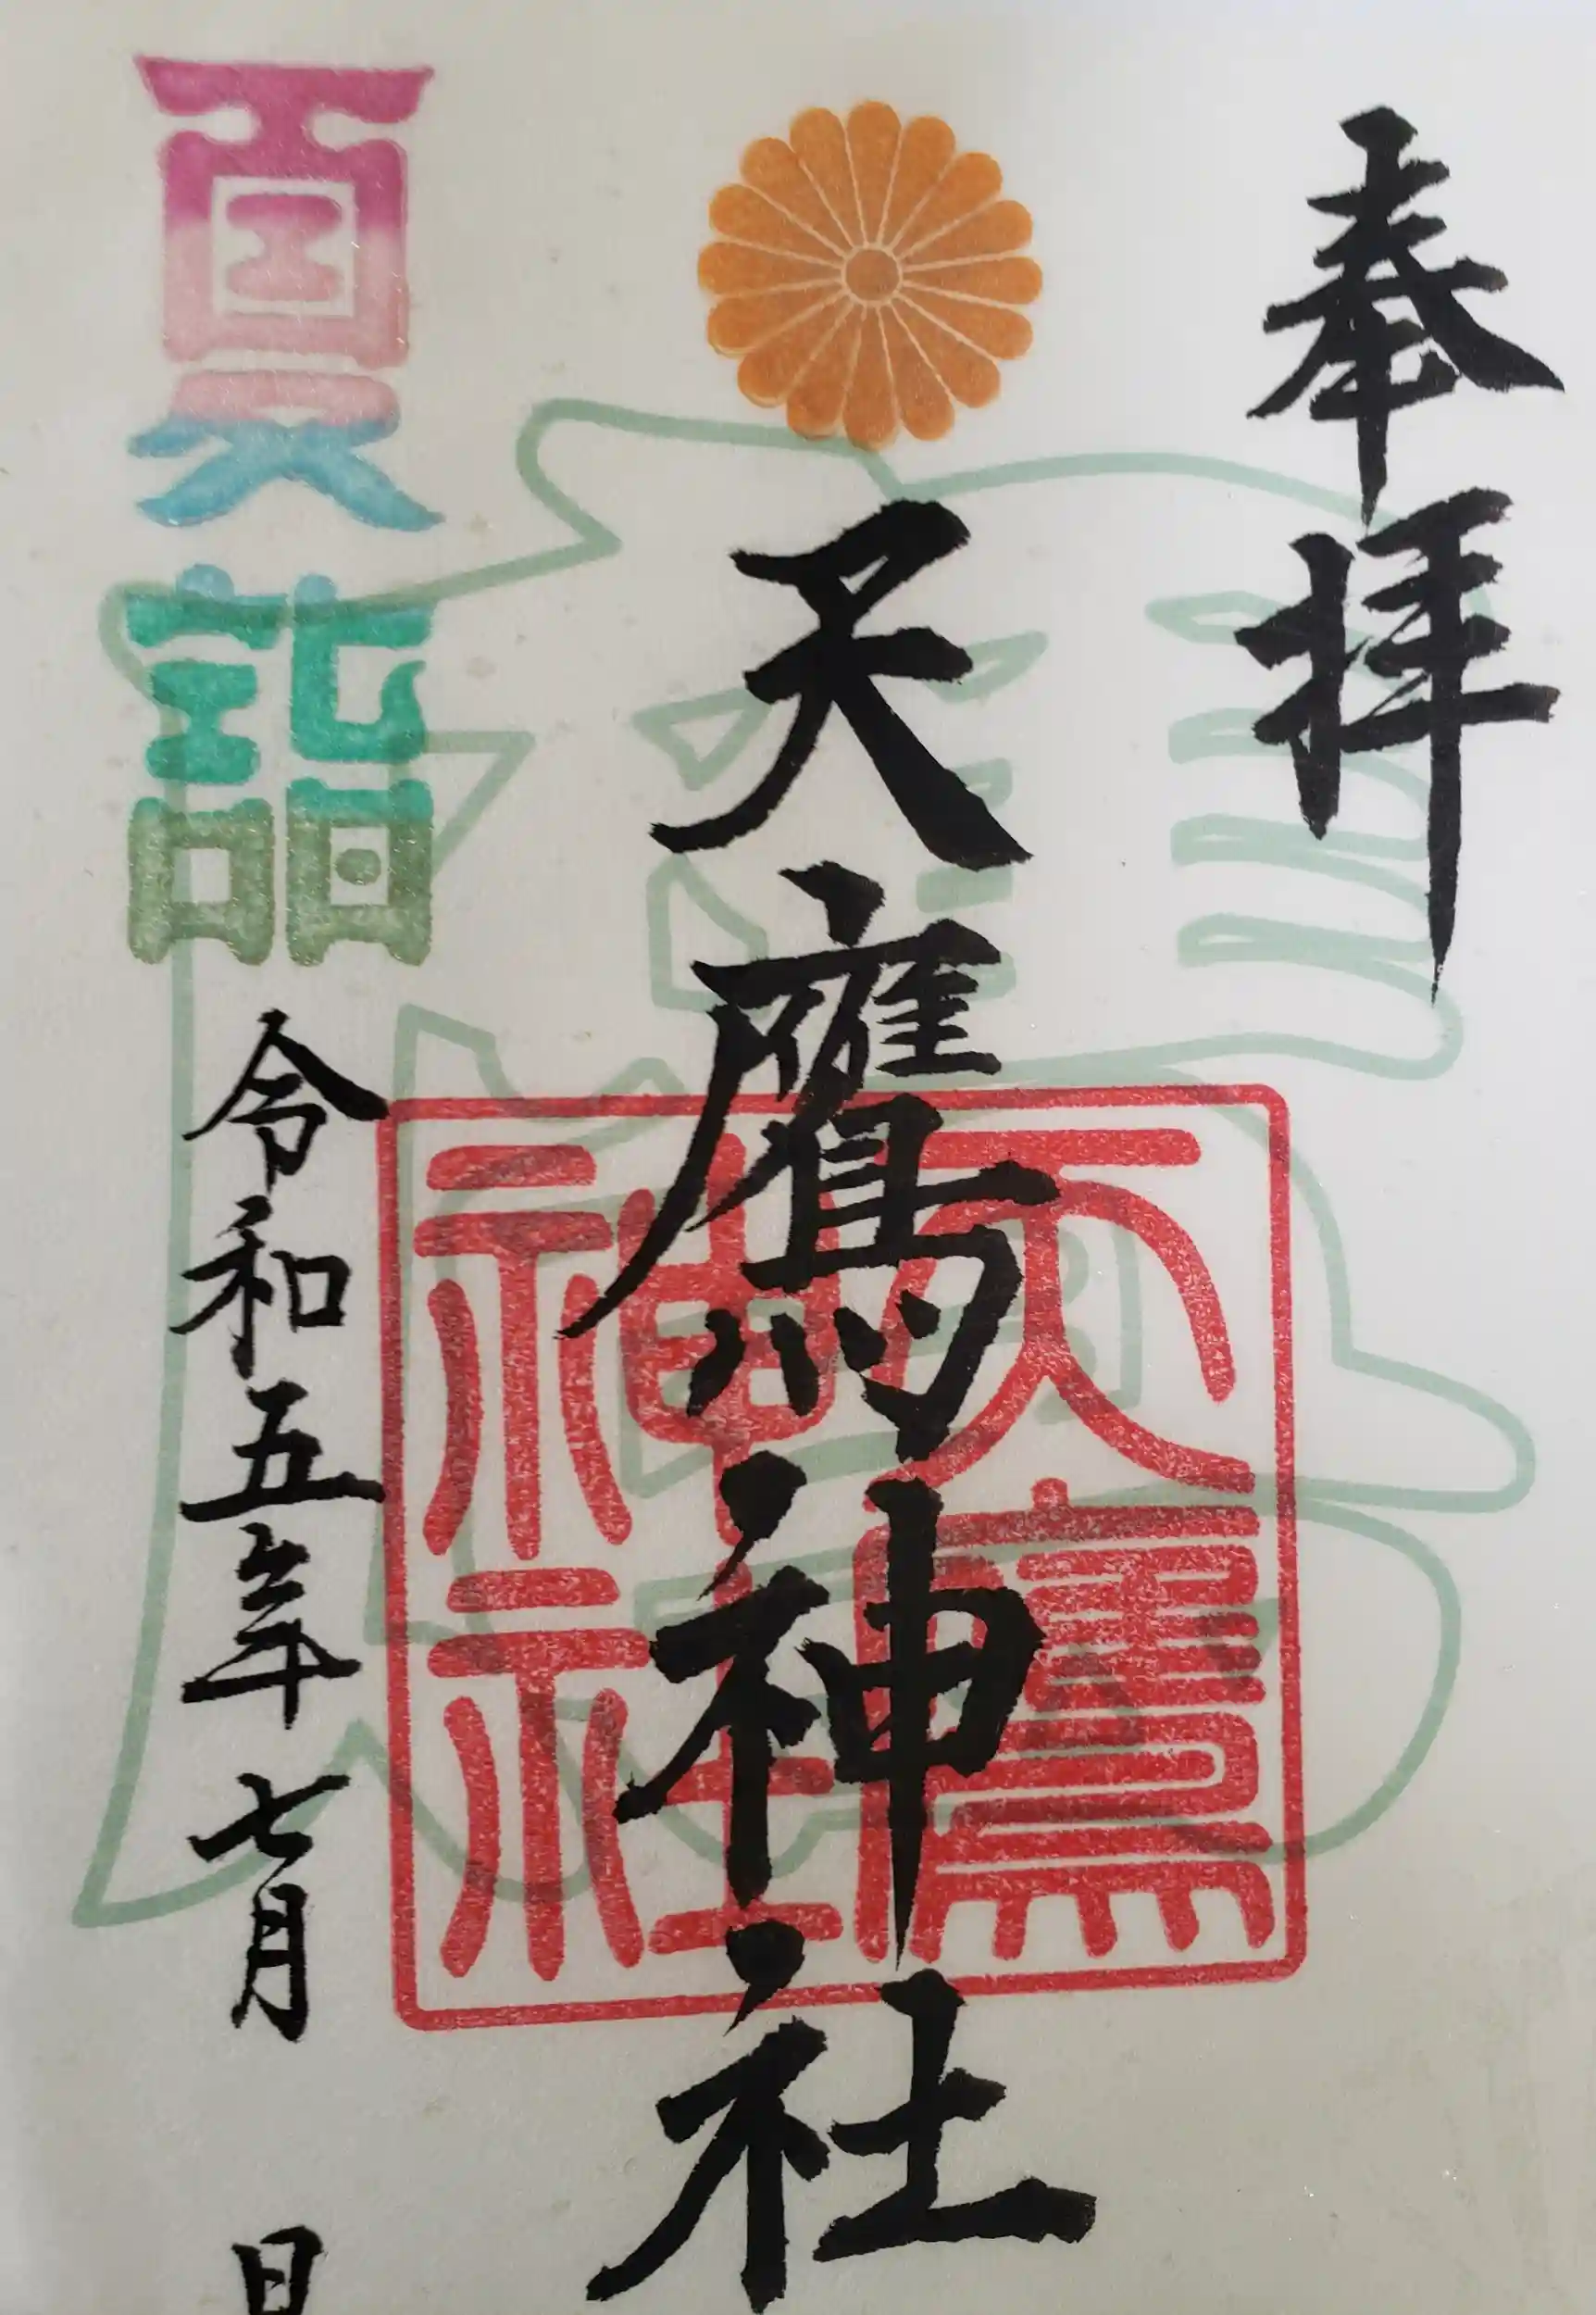 奉拝
天鷹神社
天鷹神社
夏詣
令和五年七月 日